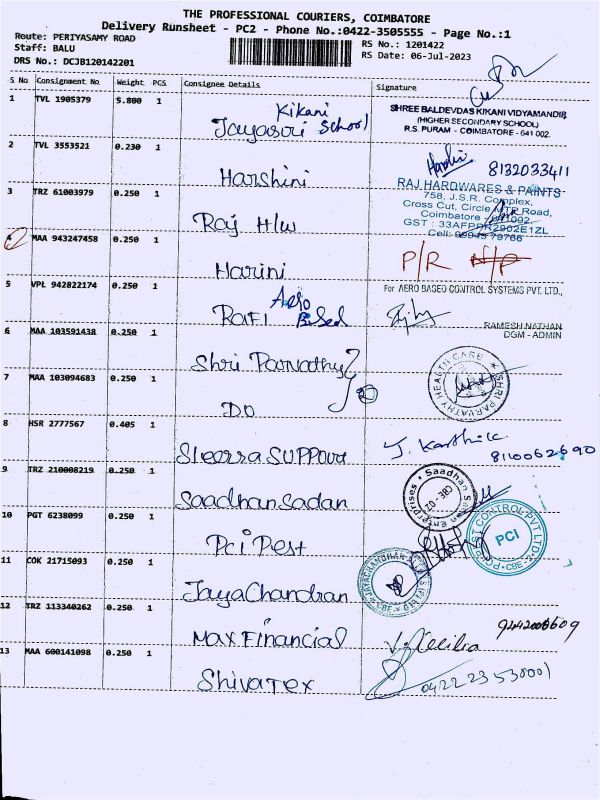 THE PROFESSIONAL COURIERS, COIMBATORE
Delivery Runsheet - PC2 - Phone No.:0422-3505555 - Page No.:1
Route: PERIYASAMY ROAD
RS No.: 1201422
Staff: BALU
RS Date: 06-Jul-2023
DRS No.: DCJB120142201
S No Consignment No Weight PCS Consignee Details Signature
1 TVL 1905379 5.800 1
Kikani
Jayasri School
SHREE BALDEVDAS KIKANI VIDYAMANDIR
(HIGHER SECONDARY SCHOOL)
R.S. PURAM - COIMBATORE - 641 002.
2 TVL 3553521 0.230 1
Harshini
8132033411
3 TRZ 61003979 0.250 1
Raj H/w
RAJ HARDWARES & PAINTS
758, J.S.R. Complex,
Cross Cut, Circle MTP Road,
Coimbatore
GST : 33AFPPR2902E1ZL
Cell: 99945 79766
4 MAA 943247458 0.250 1
Harini
P/R
5 VPL 942822174 0.250 1
RAFI Aero Based
For AERO BASED CONTROL SYSTEMS PVT. LTD.,
RAMESH NATHAN
DGM - ADMIN
6 MAA 103591438 0.250 1
Shri Parvathy
SHRI PARVATHY HEALTH CARE
7 MAA 103094683 0.250 1
DO
8 HSR 2777567 0.405 1
Sleerra Support
J. Karthick
8110062690
9 TRZ 210008219 0.250 1
Saadhan Sadan
Saadhan Enterprises
CBE - 02
10 PGT 6238099 0.250 1
Pci Pest
PEST CONTROL PVT LTD
PCI
CBE
11 COK 21715093 0.250 1
JayaChandran
JAYACHANDRAN
CBE
12 TRZ 113340262 0.250 1
Max Financial
V. Cecilia
13 MAA 600141098 0.250 1
Shivatex
0422 23538001